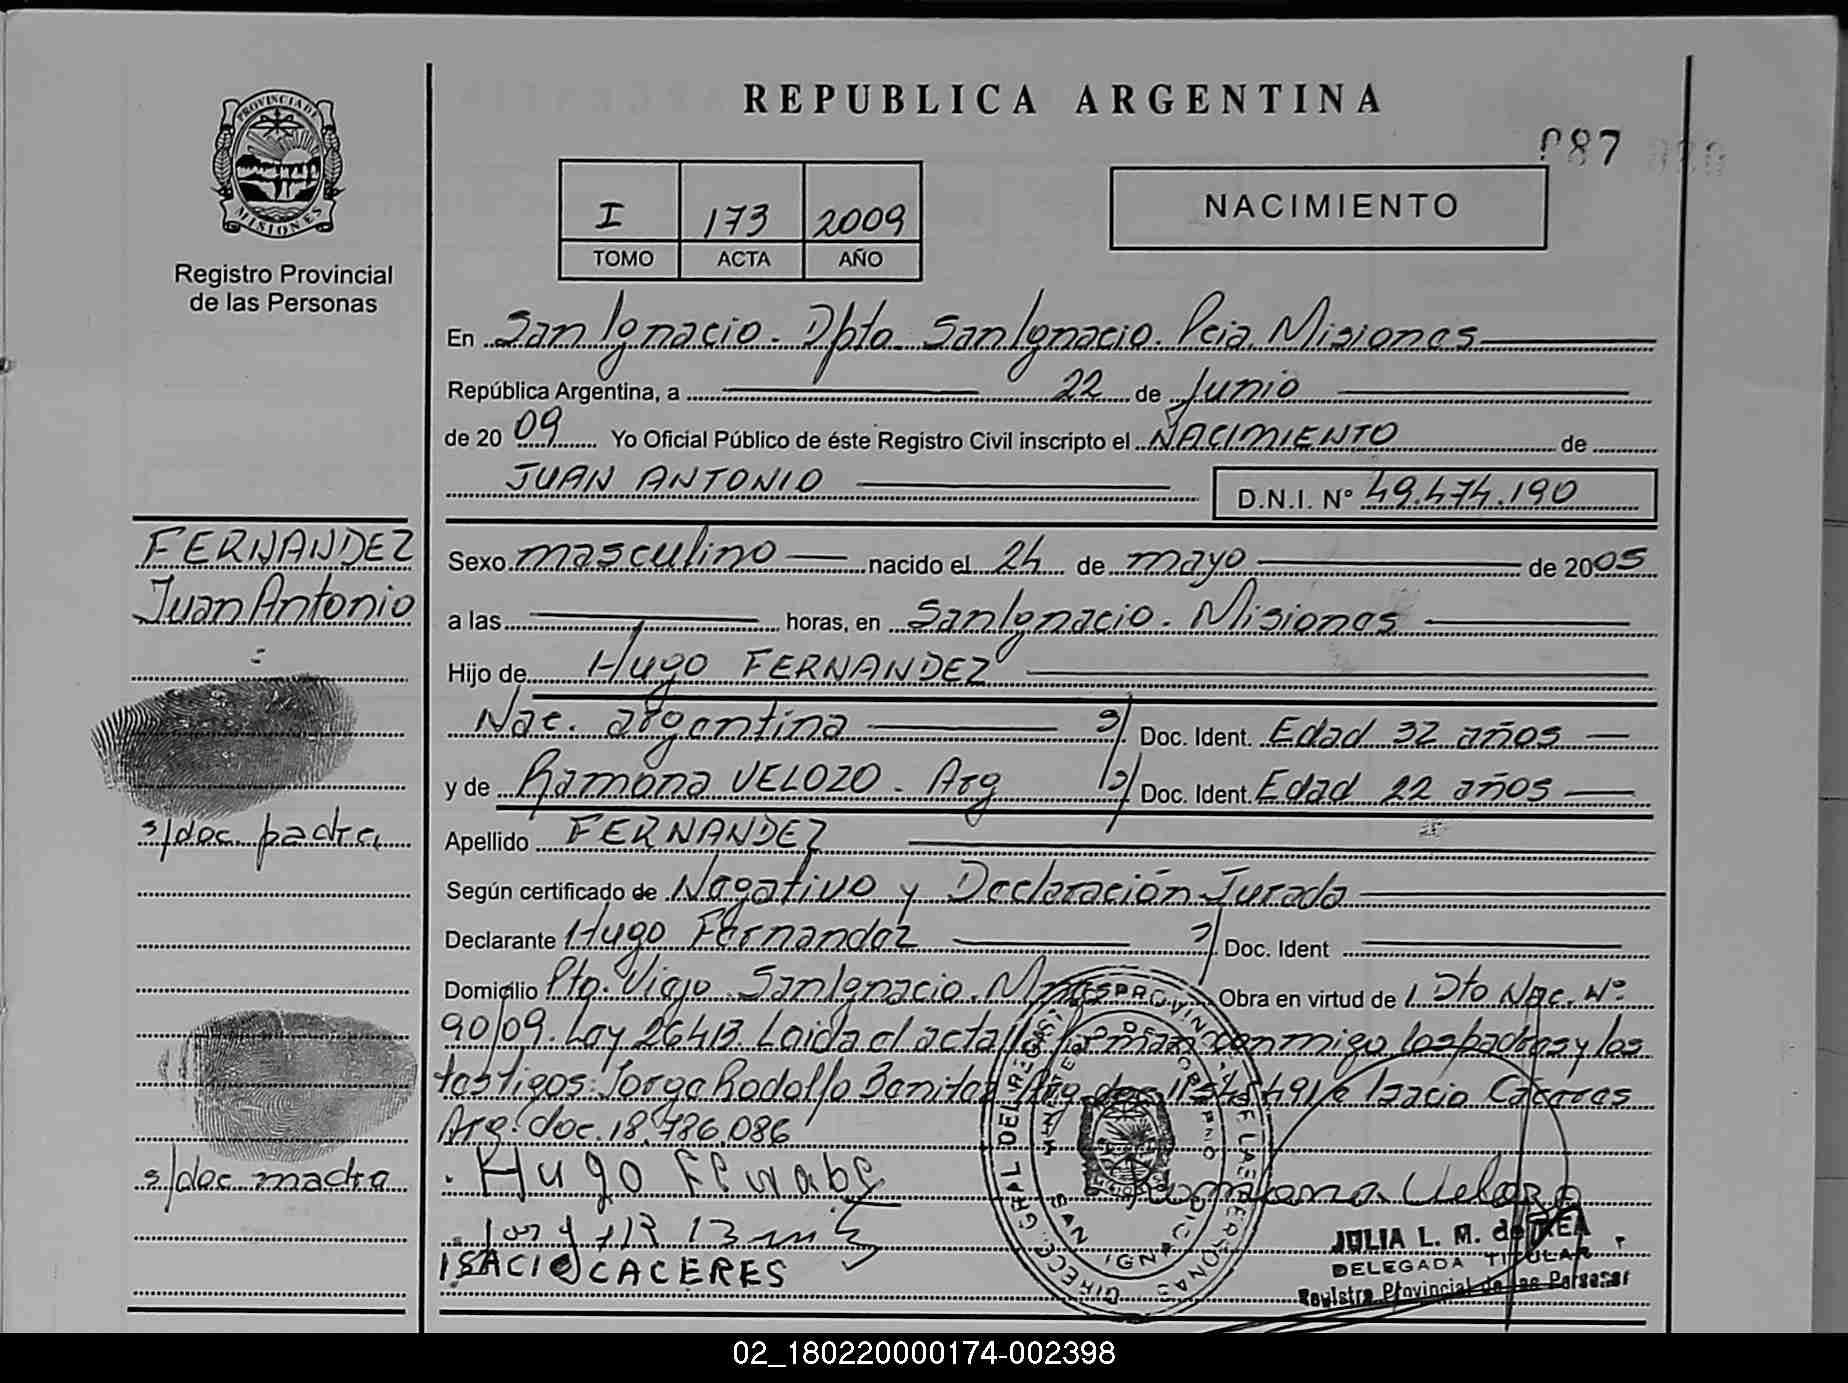 REPUBLICA ARGENTINA
087
PROVINCIA DE
MISIONES
Registro Provincial
de las Personas
I 173 2009
TOMO ACTA AÑO
NACIMIENTO
En San Ignacio. Dpto San Ignacio. Pcia. Misiones
República Argentina, a 22 de Junio
de 2009 Yo Oficial Público de éste Registro Civil inscripto el NACIMIENTO de
JUAN ANTONIO D.N.I. N° 49.474.190
FERNANDEZ
Juan Antonio
Sexo masculino nacido el 24 de mayo de 2005
a las horas, en San Ignacio. Misiones
Hijo de Hugo FERNANDEZ
Nac. argentina s/ Doc. Ident. Edad 32 años
y de Ramona VELOZO. Arg s/ Doc. Ident. Edad 22 años
s/doc padre
Apellido FERNANDEZ
Según certificado de Negativo y Declaración Jurada
Declarante Hugo Fernandez s/ Doc. Ident
Domicilio Pto. Viejo San Ignacio. Mnes Obra en virtud de Dto Nac. N°
90/09. Ley 26413. Leida el acta firman conmigo los padres y los
testigos: Jorge Rodolfo Benitez Arg. doc. e Isacio Caceres
Arg. doc. 18.786.086
s/doc madre
Hugo
Velozo
ISACIO CACERES
DIRECC. GRAL DEL REGIST. PROVINC. DE LAS PERSONAS
MINISTERIO DE GOBIERNO
SAN IGNACIO
JULIA L. M. de REA
DELEGADA TITULAR
Registro Provincial de las Personas
02_180220000174-002398